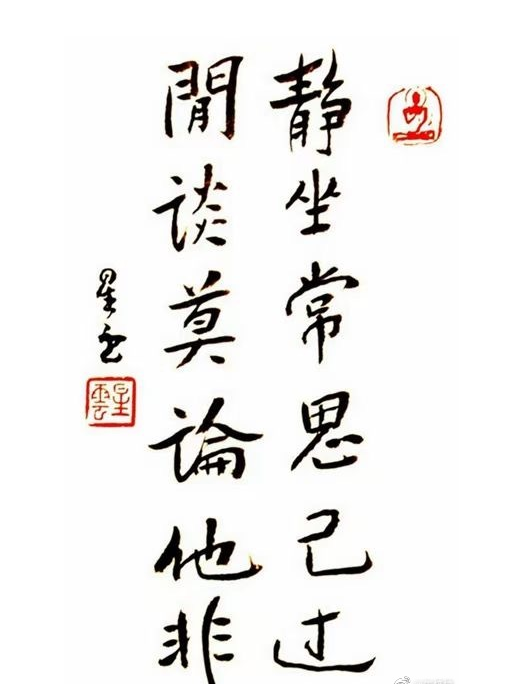 静坐常思己过
閒谈莫論他非
星云
星雲